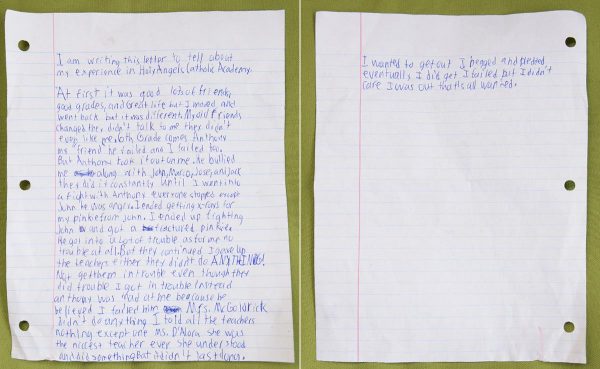 I am writing this letter to tell about
my experience in Holy Angels Catholic Academy.
At first it was good lots of friends,
good grades, and Great life but I moved and
went back but it was different. My old friends
changed they didn't talk to me they didn't
even like me. 6th Grade comes Anthony
my friend he failed and I failed too.
But Anthony took it out on me. he bullied
me along with John, Marco, Jose, and Jack
they did it constantly until I went into
a fight with Anthony everyone stopped except
John he was angry. I ended getting x-rays for
my pinkie from John. I ended up fighting
John and got a fractured pinkie
He got into a lot of trouble as for me no
trouble at all. But they continued I gave up
the teachers either they didn't do ANYTHING!
Not get them in trouble even though they
did trouble I got in trouble Instead
anthony was mad at me because he
believed I failed him Mrs. McGoldrick
didn't do anything I told all the teachers
nothing except one Ms. D'Alora she was
the nicest teacher ever she understood
and did something But it didn't last long.
I wanted to get out I begged and pleded
eventually I did get I failed but I didn't
care I was out thats all I wanted.